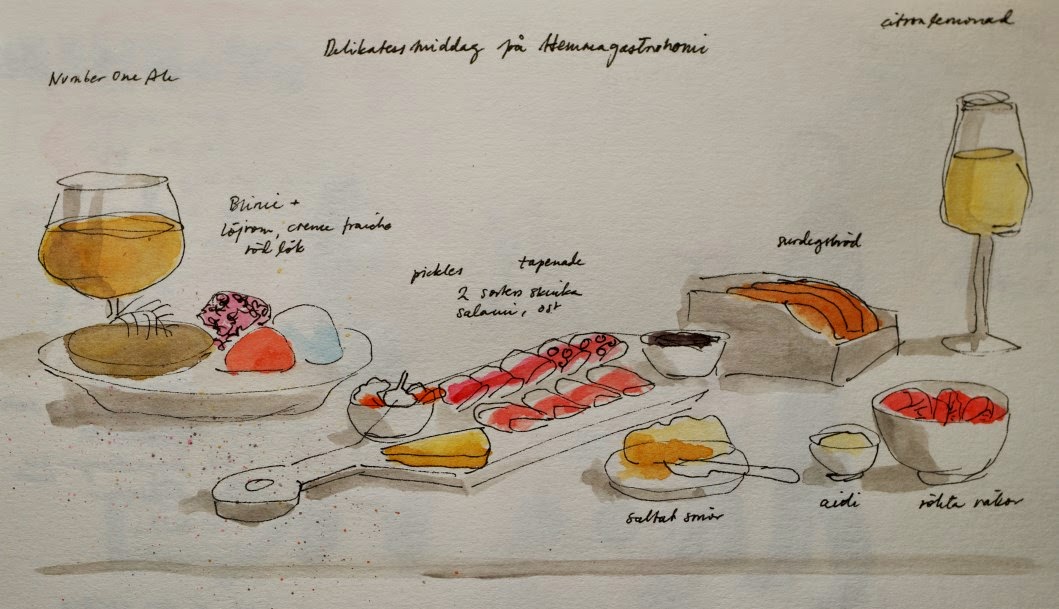 citronlemonad
Delikatessmiddag på Hemmagastronomi
Number One Ale
Blinie +
löjrom, creme fraiche
röd lök
pickles
tapenade
2 sorters skinka
salami, ost
surdegsbröd
saltat smör
aioli
rökta räkor